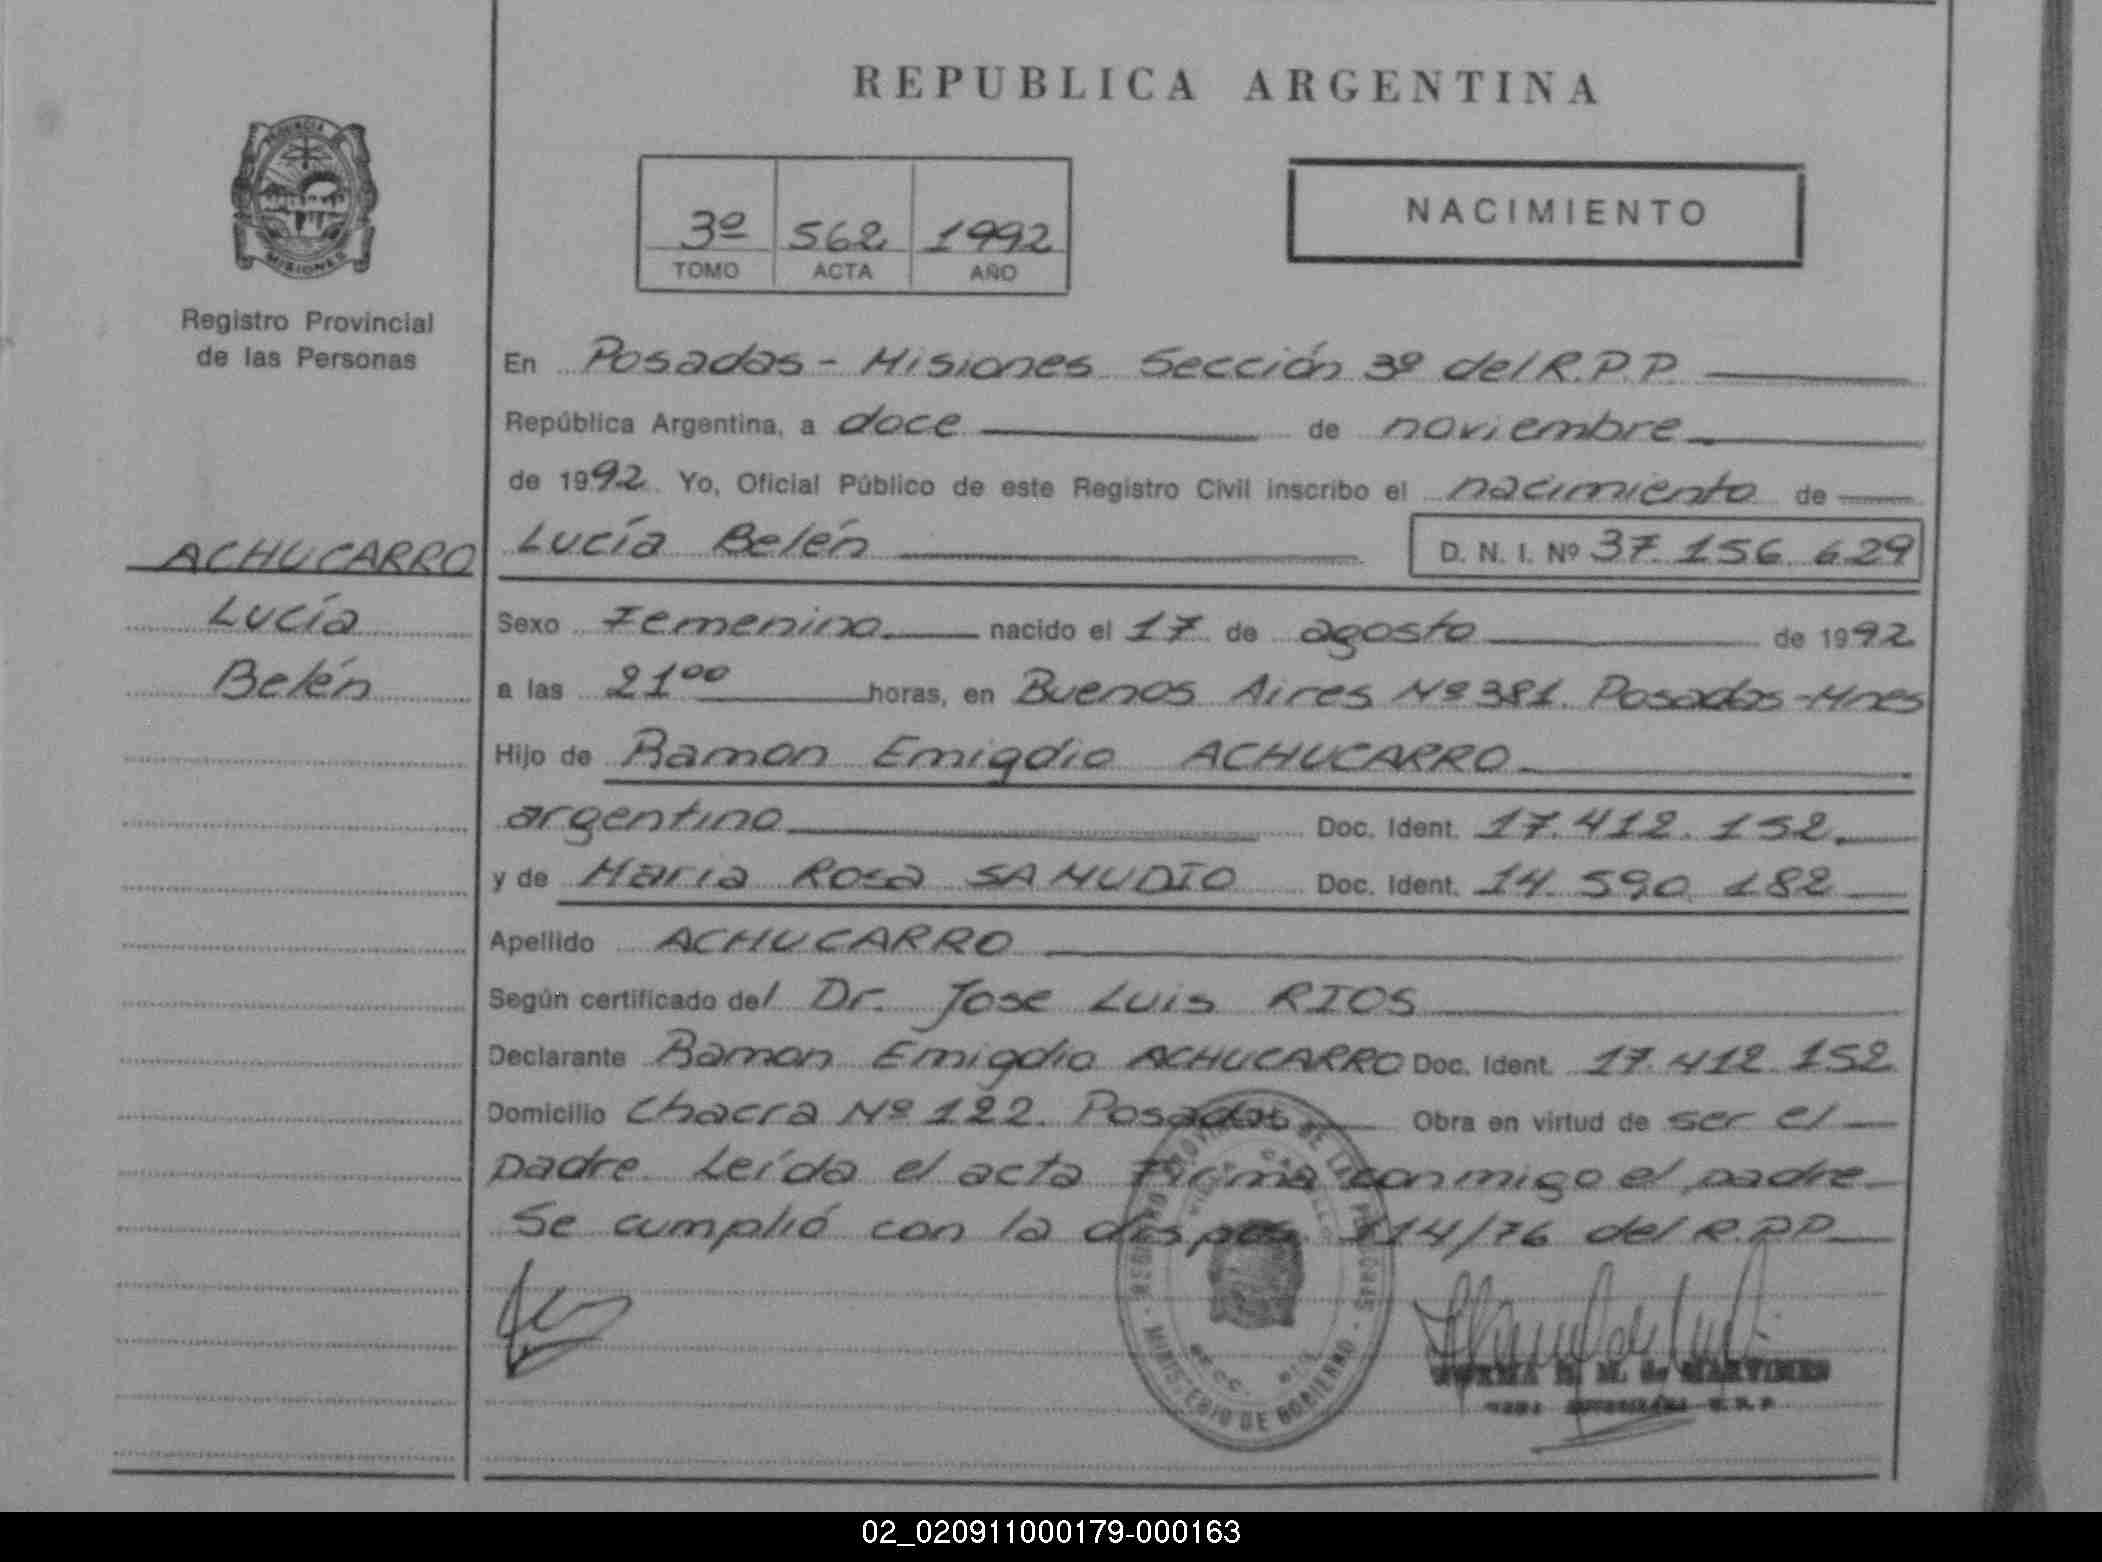 REPUBLICA ARGENTINA
PROVINCIA
MISIONES
Registro Provincial
de las Personas
3º 562 1992
TOMO ACTA AÑO
NACIMIENTO
En Posadas - Misiones Sección 3º del R.P.P.
República Argentina, a doce de noviembre
de 1992. Yo, Oficial Público de este Registro Civil inscribo el nacimiento de
ACHUCARRO
Lucía
Belén
Lucía Belén D. N. I. Nº 37.156.629
Sexo Femenino nacido el 17 de agosto de 1992
a las 21⁰⁰ horas, en Buenos Aires Nº 381. Posadas-Mnes
Hijo de Ramon Emigdio ACHUCARRO
argentino Doc. Ident. 17.412.152.
y de Maria Rosa SAMUDIO Doc. Ident. 14.590.182
Apellido ACHUCARRO
Según certificado del Dr. Jose Luis RIOS
Declarante Ramon Emigdio ACHUCARRO Doc. Ident. 17.412.152
Domicilio Chacra Nº 122. Posadas Obra en virtud de ser el
padre. Leída el acta Firma conmigo el padre
Se cumplió con la dispos. 114/76 del R.P.P.
MINISTERIO DE GOBIERNO
M. de MARTINEZ
02_020911000179-000163